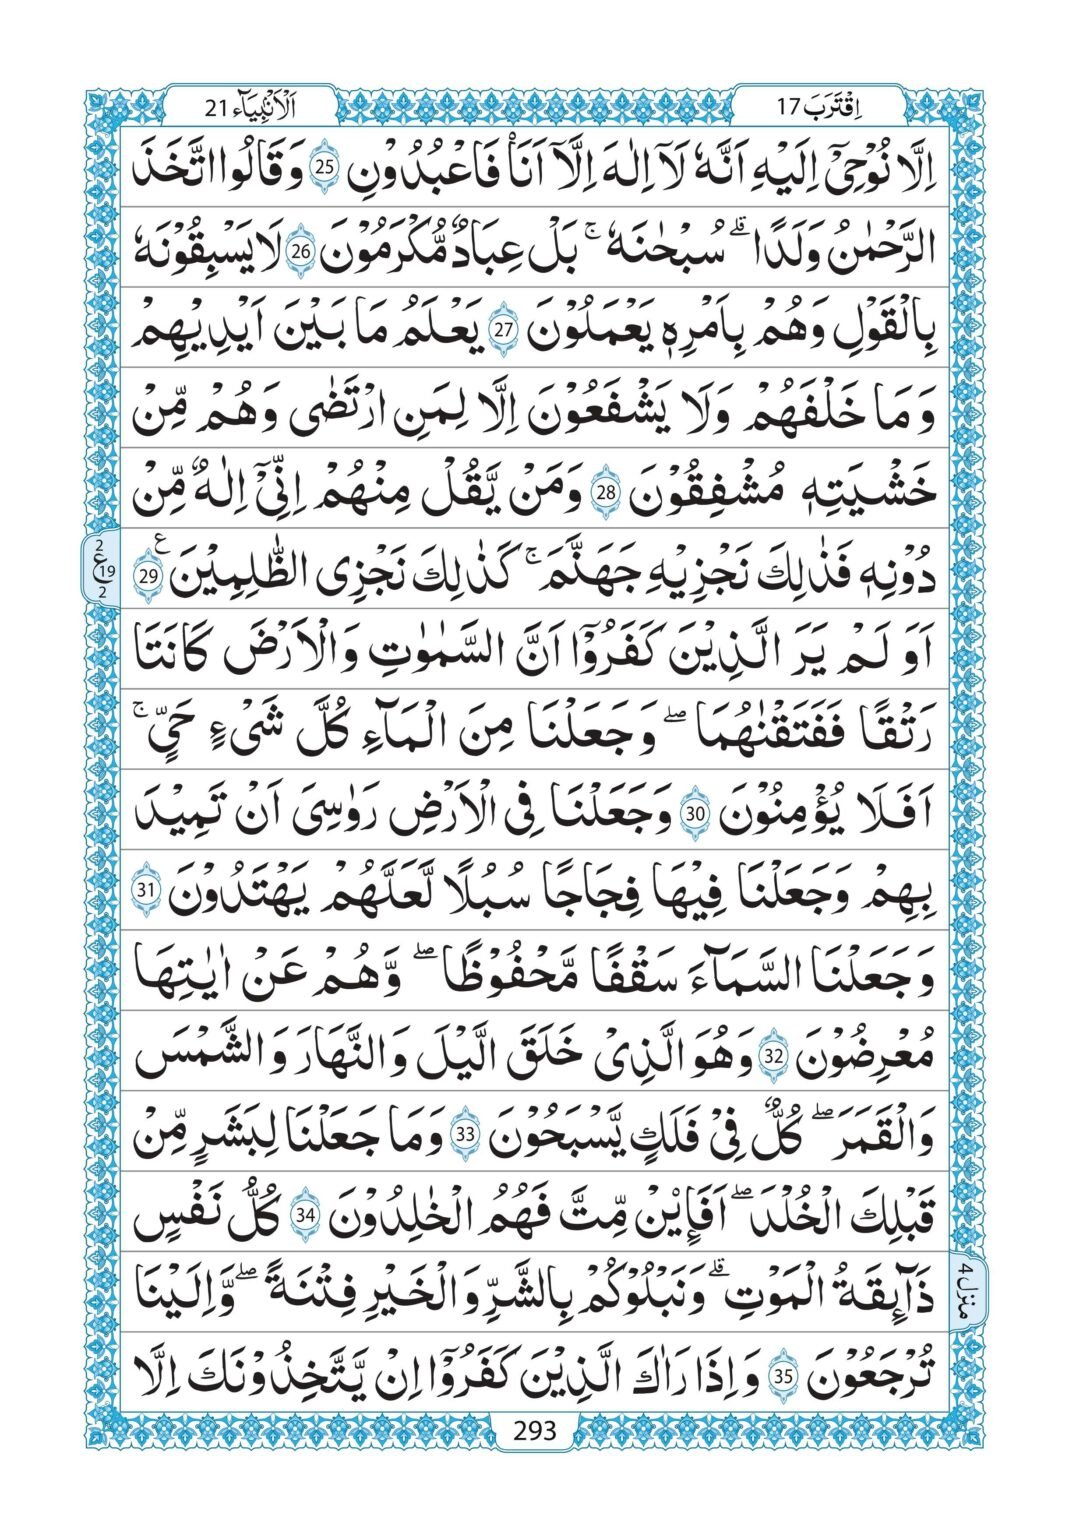 اِقْتَرَبَ 17
اَلْاَنْۢبِيَآء 21
اِلَّا نُوْحِیْۤ اِلَیْهِ اَنَّهٗ لَاۤ اِلٰهَ اِلَّاۤ اَنَا۠ فَاعْبُدُوْنِ 25 وَ قَالُوا اتَّخَذَ
الرَّحْمٰنُ وَلَدًا ۙ سُبْحٰنَهٗ ؕ بَلْ عِبَادٌ مُّكْرَمُوْنَ 26 لَا یَسْبِقُوْنَهٗ
بِالْقَوْلِ وَهُمْ بِاَمْرِهٖ یَعْمَلُوْنَ 27 یَعْلَمُ مَا بَیْنَ اَیْدِیْهِمْ
وَ مَا خَلْفَهُمْ وَلَا یَشْفَعُوْنَ اِلَّا لِمَنِ ارْتَضٰی وَهُمْ مِّنْ
خَشْیَتِهٖ مُشْفِقُوْنَ 28 وَمَنْ یَّقُلْ مِنْهُمْ اِنِّیْۤ اِلٰهٌ مِّنْ
دُوْنِهٖ فَذٰلِكَ نَجْزِیْهِ جَهَنَّمَ ۚ كَذٰلِكَ نَجْزِی الظّٰلِمِیْنَ ع 29
2 ع 19 2
اَوَ لَمْ یَرَ الَّذِیْنَ كَفَرُوْۤا اَنَّ السَّمٰوٰتِ وَالْاَرْضَ كَانَتَا
رَتْقًا فَفَتَقْنٰهُمَا ۖ وَجَعَلْنَا مِنَ الْمَآءِ كُلَّ شَیْءٍ حَیٍّ ۚ
اَفَلَا یُؤْمِنُوْنَ 30 وَجَعَلْنَا فِی الْاَرْضِ رَوٰسِیَ اَنْ تَمِیْدَ
بِهِمْ وَجَعَلْنَا فِیْهَا فِجَاجًا سُبُلًا لَّعَلَّهُمْ یَهْتَدُوْنَ 31
وَجَعَلْنَا السَّمَآءَ سَقْفًا مَّحْفُوْظًا ۖ وَّهُمْ عَنْ اٰیٰتِهَا
مُعْرِضُوْنَ 32 وَهُوَ الَّذِیْ خَلَقَ الَّیْلَ وَالنَّهَارَ وَالشَّمْسَ
وَالْقَمَرَ ۖ كُلٌّ فِیْ فَلَكٍ یَّسْبَحُوْنَ 33 وَمَا جَعَلْنَا لِبَشَرٍ مِّنْ
قَبْلِكَ الْخُلْدَ ۖ اَفَا۠ئِنْ مِّتَّ فَهُمُ الْخٰلِدُوْنَ 34 كُلُّ نَفْسٍ
ذَآئِقَةُ الْمَوْتِ ۗ وَنَبْلُوْكُمْ بِالشَّرِّ وَالْخَیْرِ فِتْنَةً ۖ وَّاِلَیْنَا
منزل 4
تُرْجَعُوْنَ 35 وَاِذَا رَاٰكَ الَّذِیْنَ كَفَرُوْۤا اِنْ یَّتَّخِذُوْنَكَ اِلَّا
293